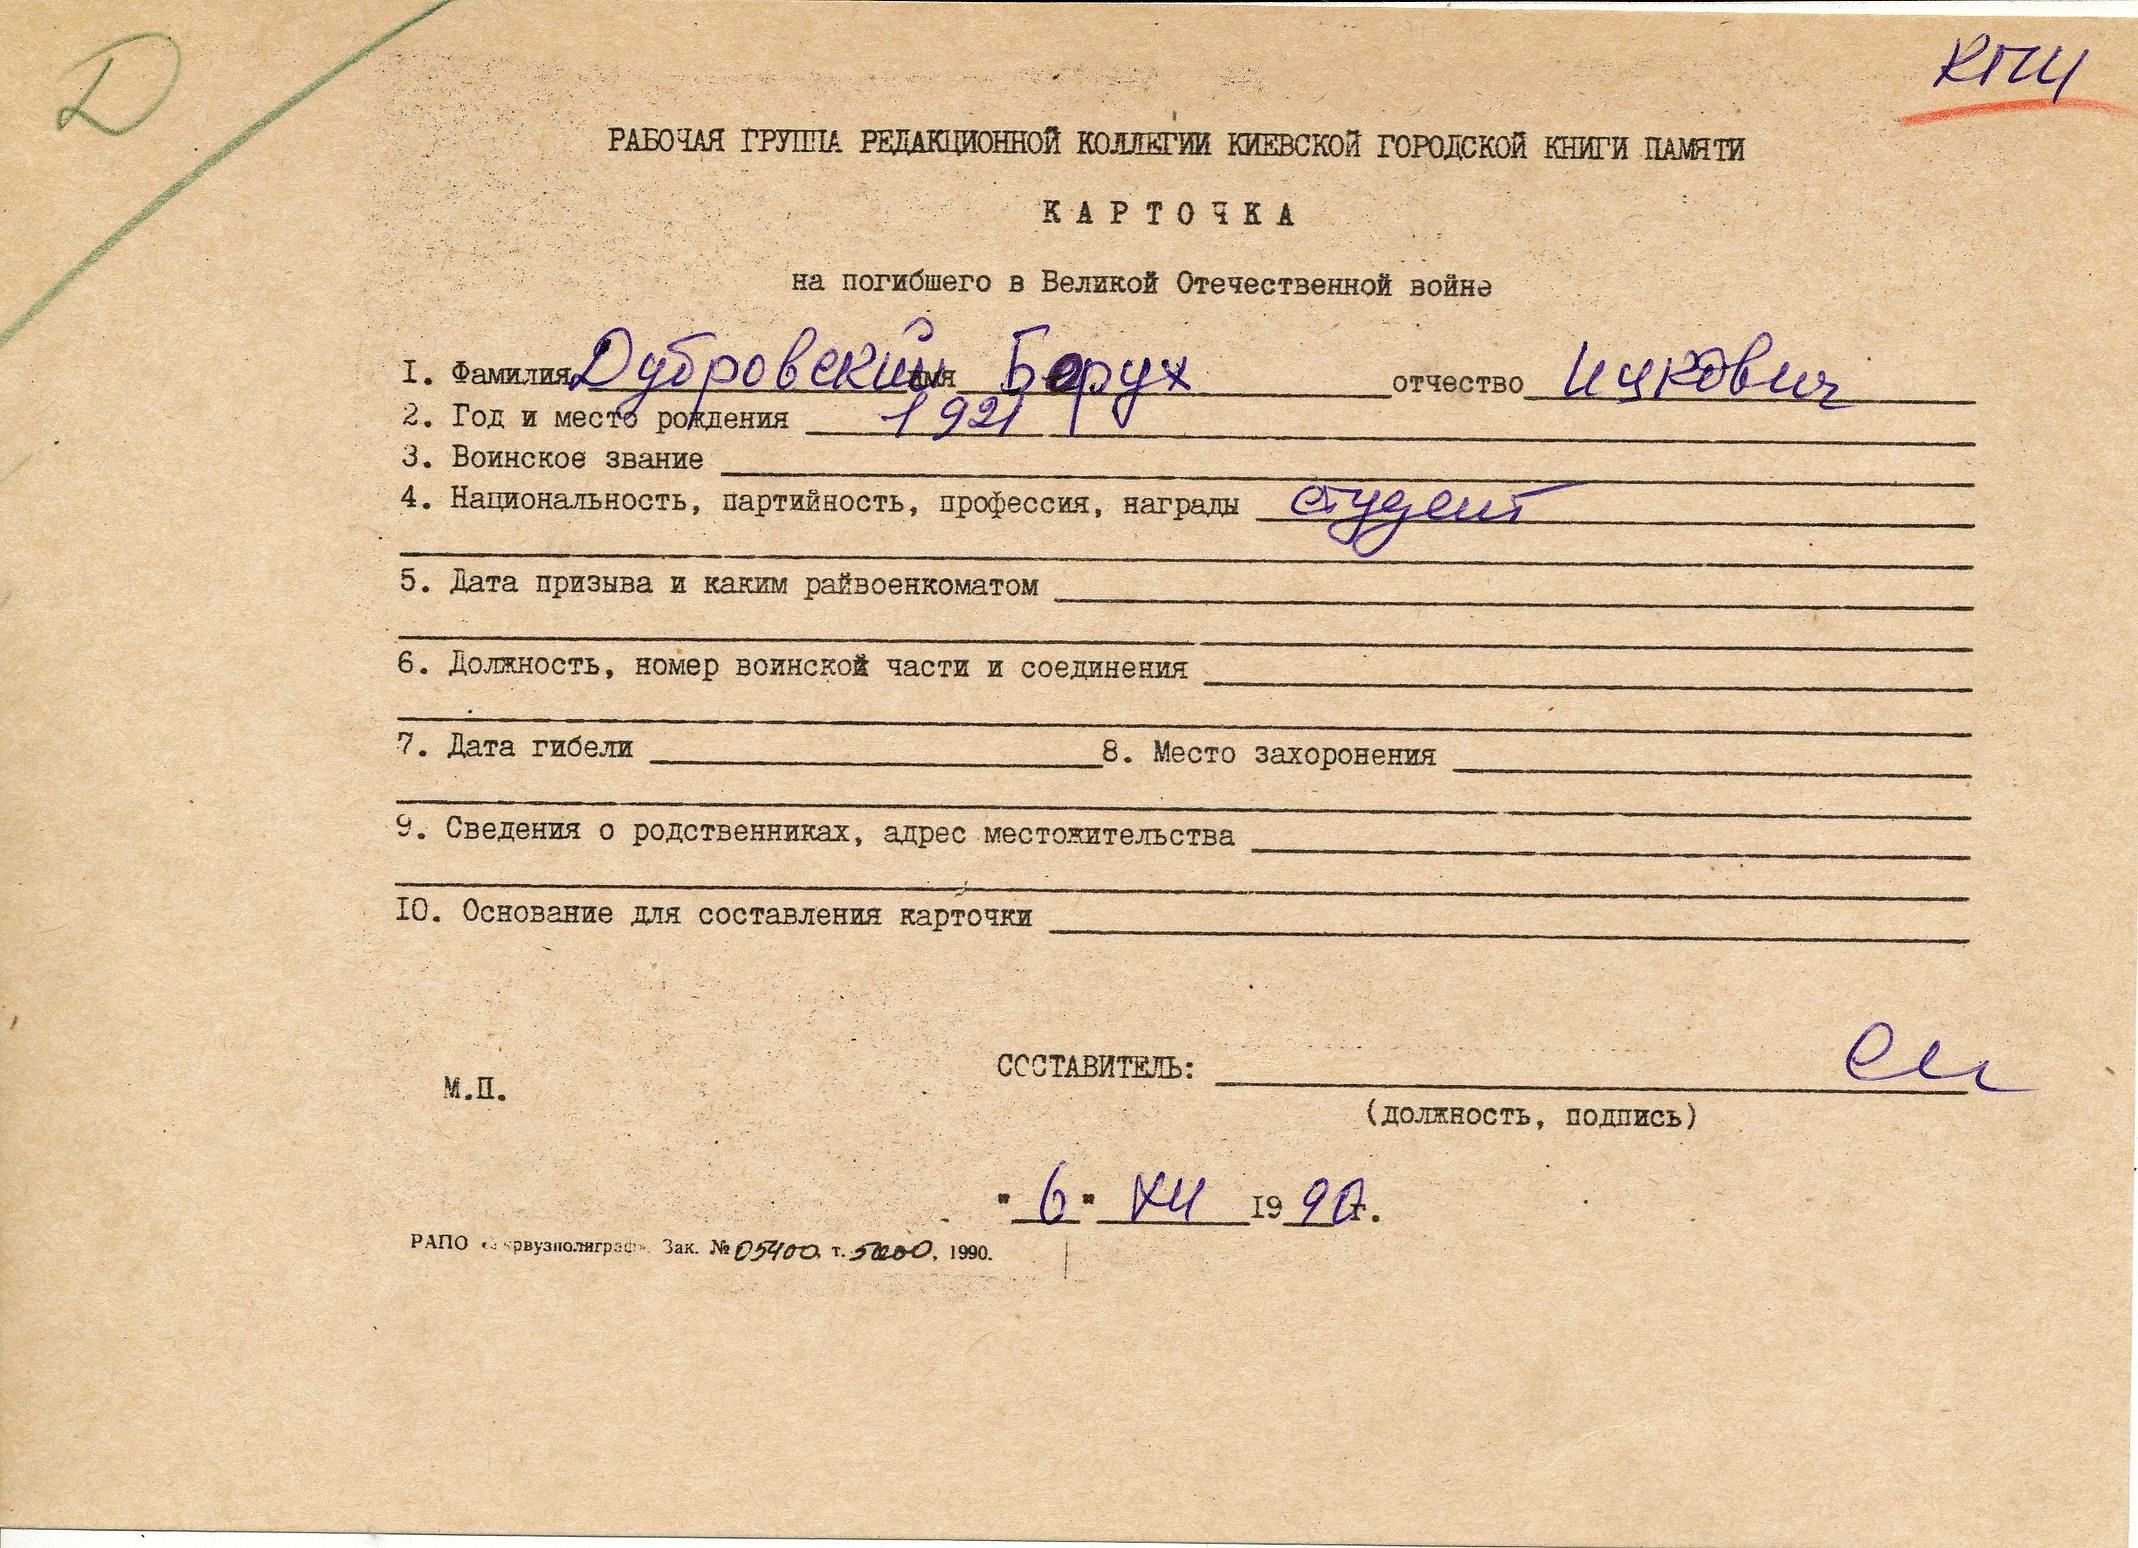 Д
КПИ
РАБОЧАЯ ГРУППА РЕДАКЦИОННОЙ КОЛЛЕГИИ КИЕВСКОЙ ГОРОДСКОЙ КНИГИ ПАМЯТИ
КАРТОЧКА
на погибшего в Великой Отечественной войне
I. Фамилия Дубровский имя Борух отчество Ицкович
2. Год и место рождения 1921
3. Воинское звание
4. Национальность, партийность, профессия, награды студент
5. Дата призыва и каким райвоенкоматом
6. Должность, номер воинской части и соединения
7. Дата гибели 8. Место захоронения
9. Сведения о родственниках, адрес местожительства
IO. Основание для составления карточки
СОСТАВИТЕЛЬ:
М.П.
(должность, подпись)
"6" XII 1990г.
РАПО «Укрвузполиграф». Зак. № 05400 т. 5000, 1990.